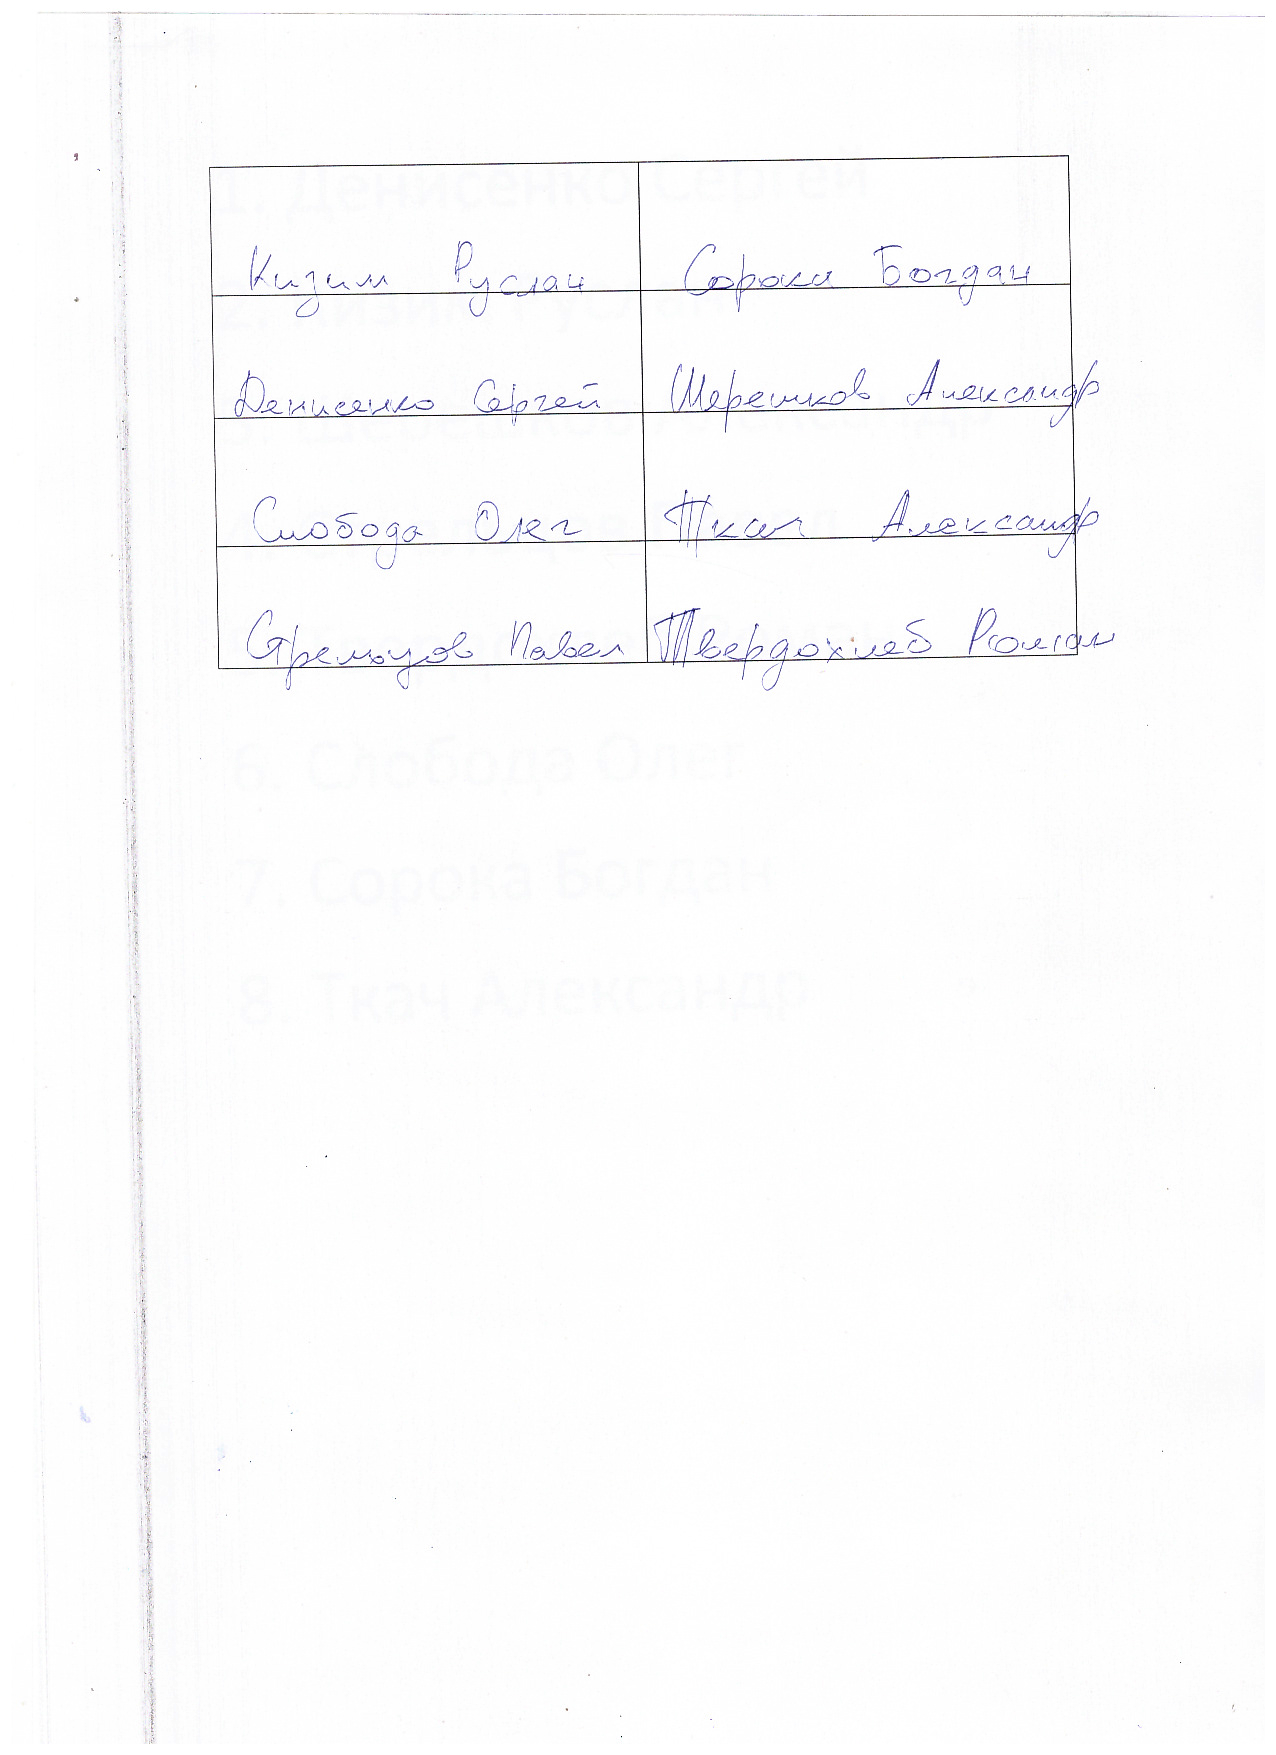 Кизим Руслан Сорока Богдан
Денисенко Сергей Александр
Слобода Олег Ткач Александр
Павел Твердохлеб Роман
1. Денисенко Сергей
2. Кизим Руслан
6. Слобода Олег
7. Сорока Богдан
8. Ткач Александр